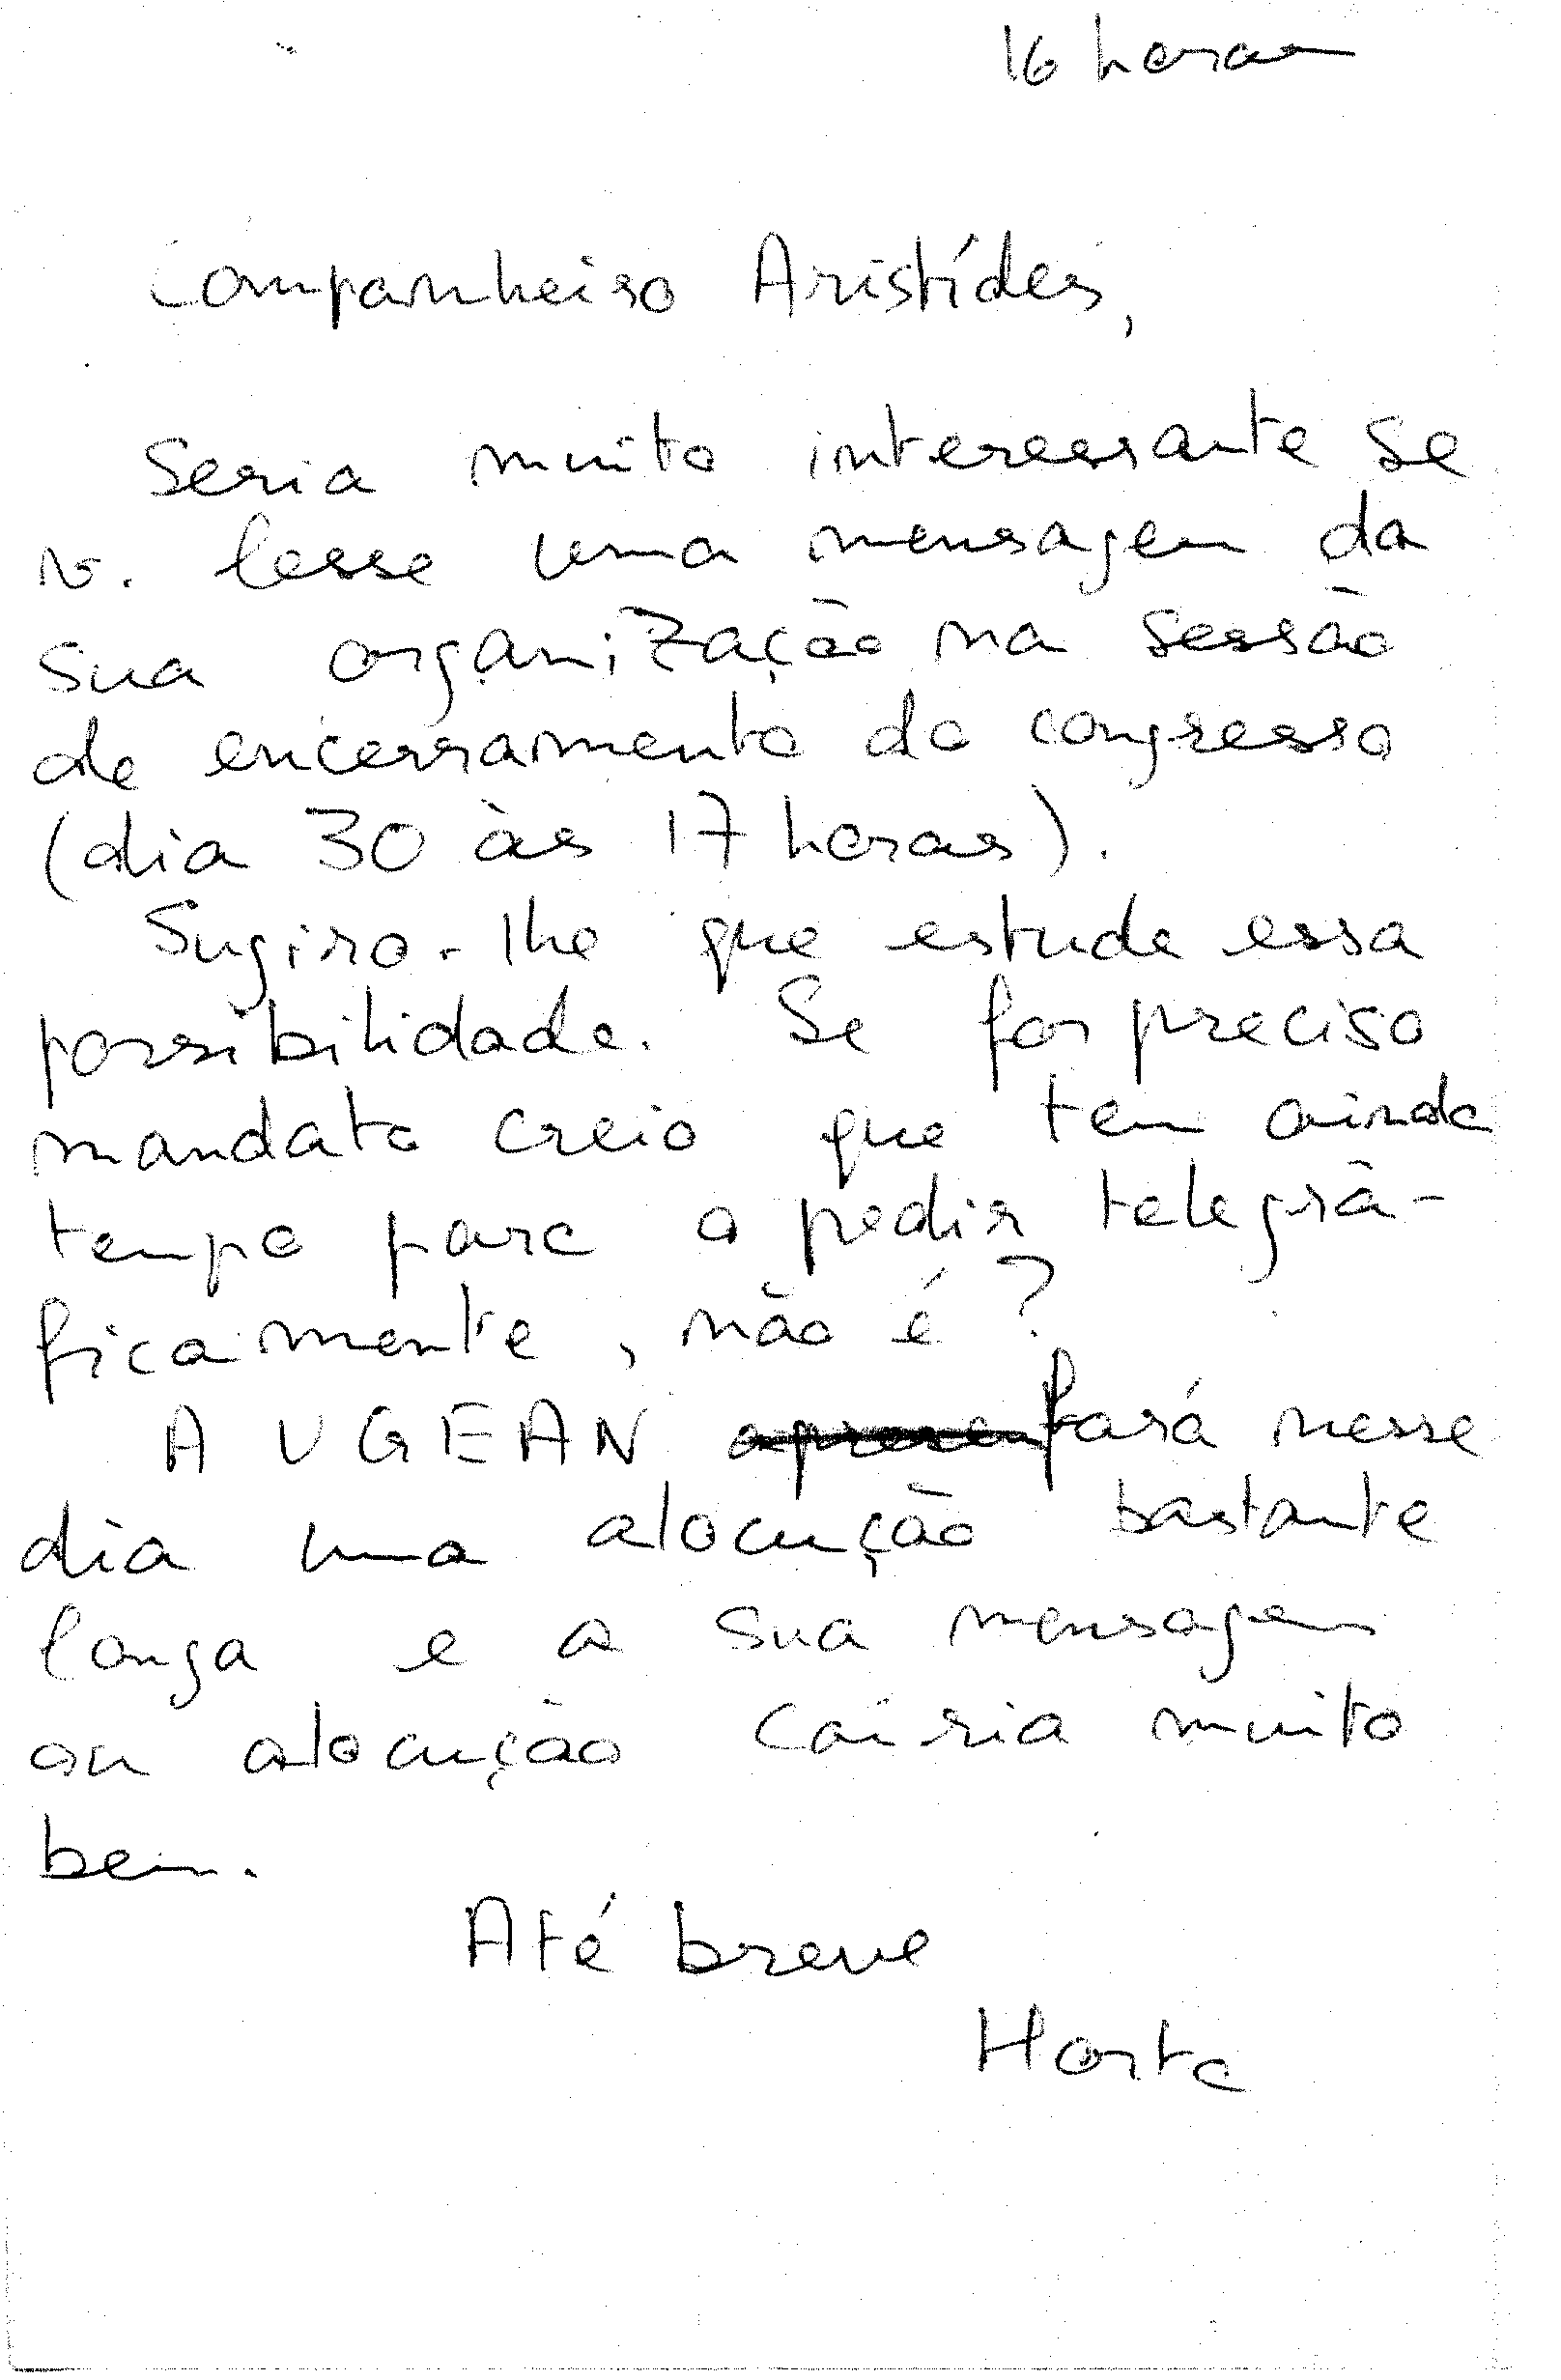 16 horas
Companheiro Aristídes,
Seria muito interessante se
v. lesse uma mensagem da
sua organização na sessão
de encerramento do congresso
(dia 30 às 17 horas).
Sugiro-lhe que estude essa
possibilidade. Se for preciso
mandato creio que tem ainda
tempo para o pedir telegrà-
ficamente, não é?
A UGEAN fará nesse
dia uma alocução bastante
longa e a sua mensagem
ou alocução caíria muito
bem.
Até breve
Horta